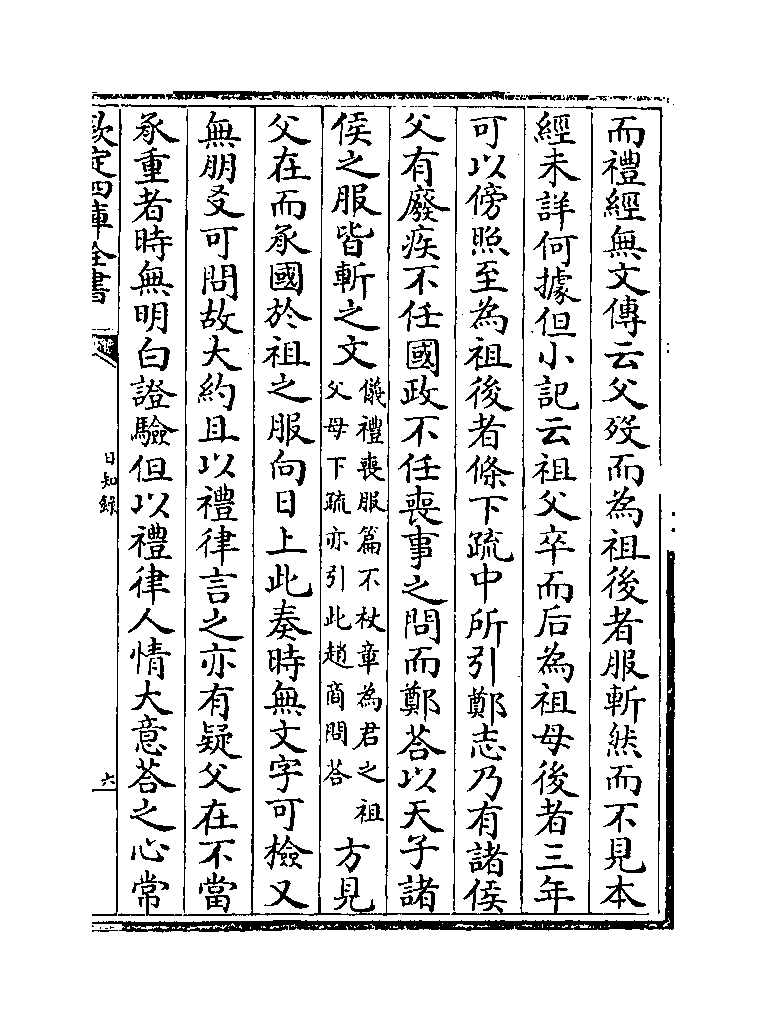 而禮經無文傳云父歿而為祖後者服斬然而不見本
經未詳何據但小記云祖父卒而后為祖母後者三年
可以傍照至為祖後者條下疏中所引鄭志乃有諸侯
父有廢疾不任國政不任喪事之問而鄭荅以天子諸
侯之服皆斬之文儀禮喪服篇不杖章為君之祖父母下疏亦引此趙商問荅方見
父在而承國於祖之服向日上此奏時無文字可檢又
無朋友可問故大約且以禮律言之亦有疑父在不當
承重者時無明白證驗但以禮律人情大意荅之心常
欽定四庫全書
日知錄
六